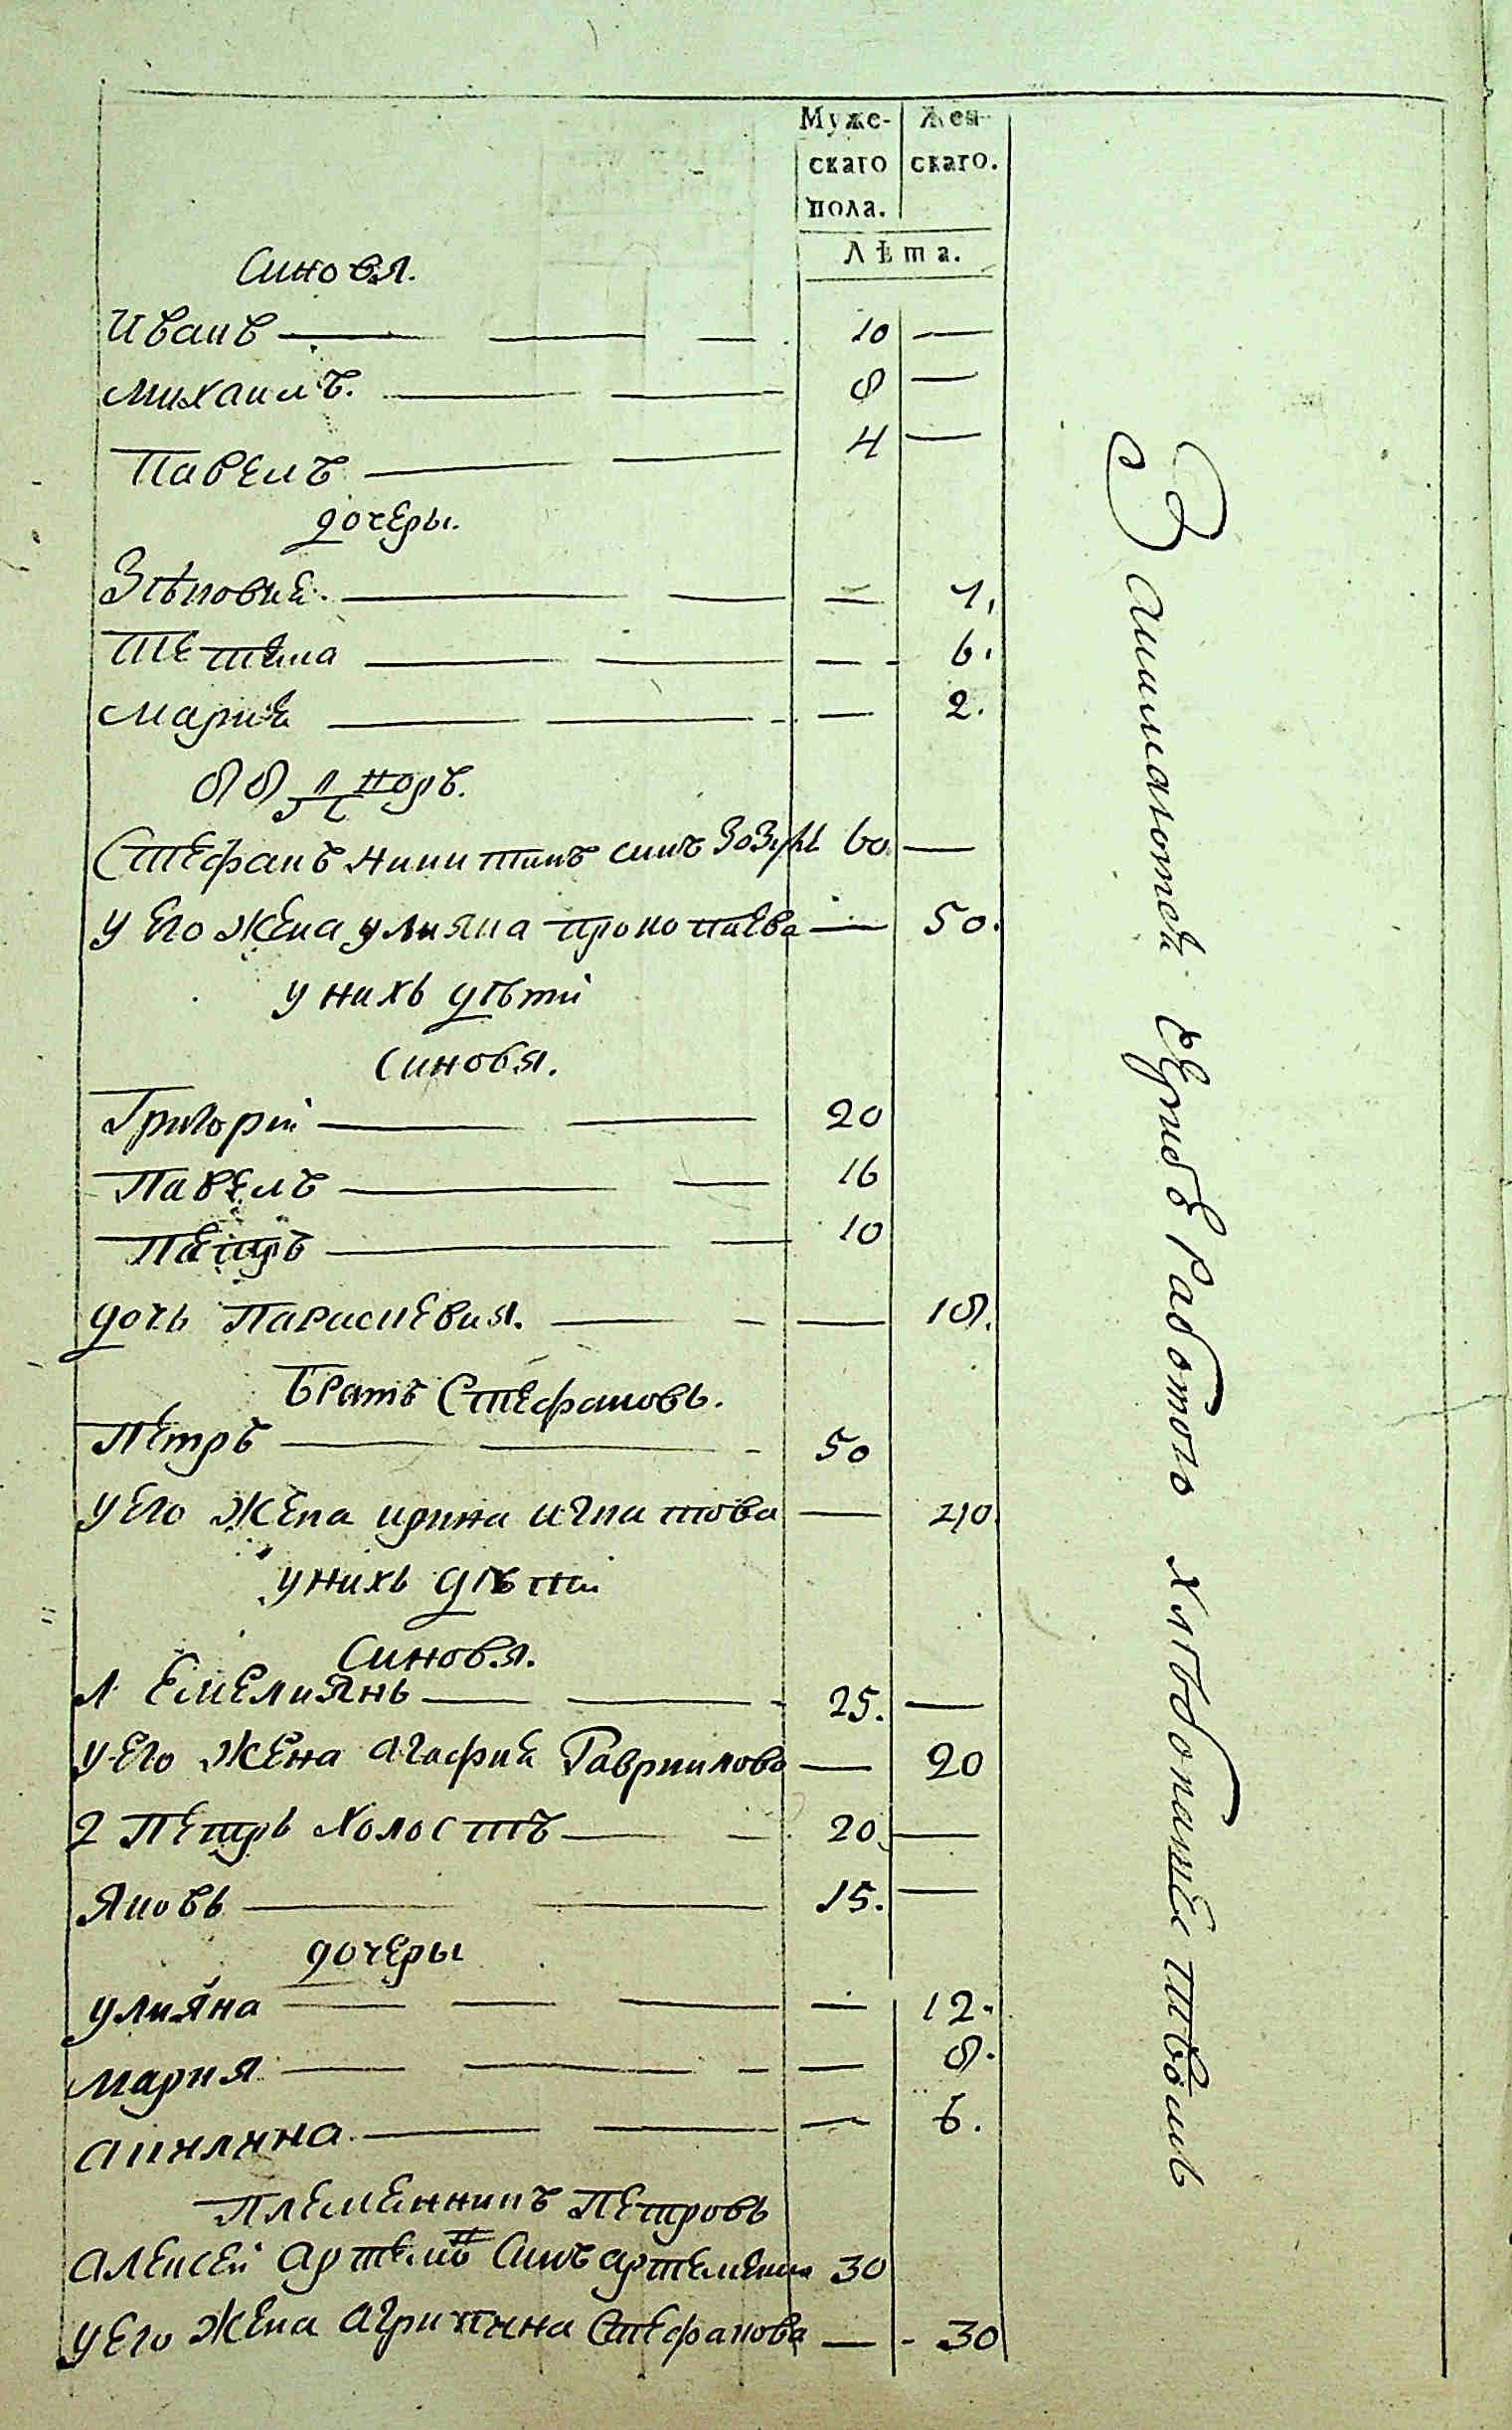 Муже- Жен-
скаго скаго.
пола.
Лѣта.
Синовя.
Иванъ 10
Михаилъ. 8
Павелъ 4
дочеры.
Зѣновия.
Тетяна 6.
Мария 2.
88 дворъ.
Стефанъ Никитинъ синъ 60
у его жена улияна прокопиева 50.
у нихъ дѣти
Синовя.
Григорій 20
Павелъ 16
Петръ 10
дочь Параскевия. 18.
Братъ Стефановъ.
Петръ 50
у его жена ирина игнатова 40.
у нихъ дѣти
Синовя.
1 Емелиянъ 25.
у его жена агафия Гавриилова 20
2 Петръ холостъ 20.
Яковъ 15.
дочеры
улияна 12.
мария 8.
акилина 6.
Племянникъ Петровъ
алексей артемъ синъ 30
у его жена агрипина Стефанова 30
Занимаются работою хлѣбопашеством